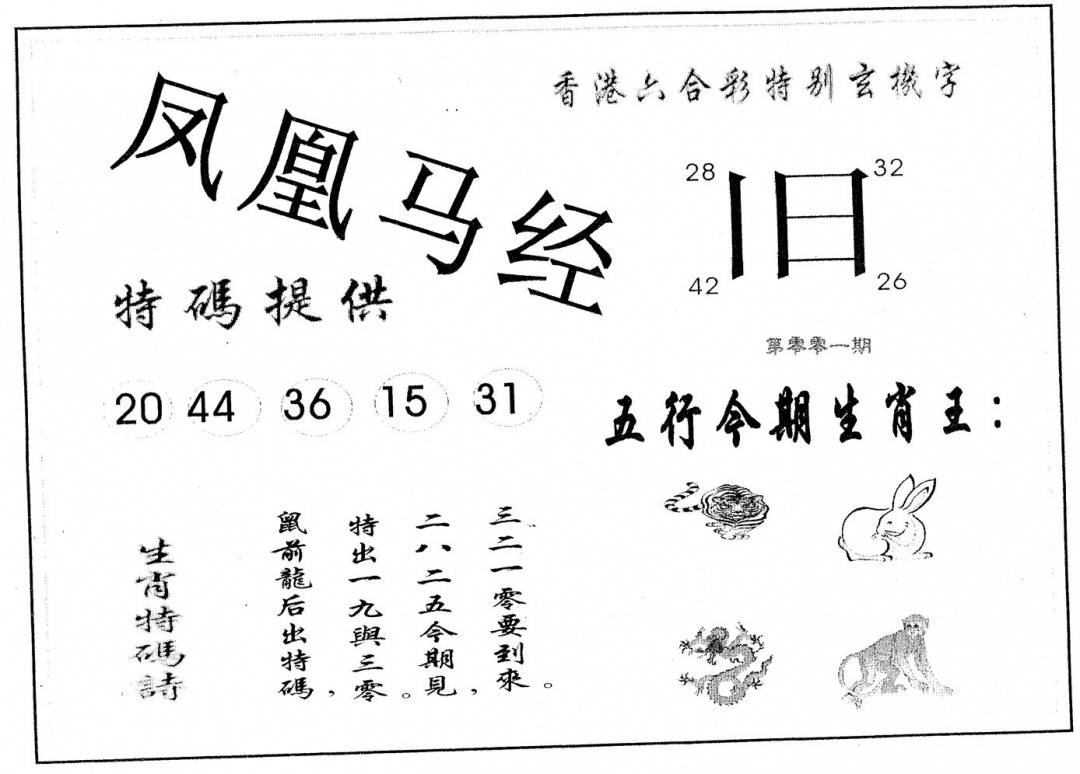 凤凰马经
香港六合彩特别玄機字
28 32
旧
42 26
第零零一期
特碼提供
20 44 36 15 31
五行今期生肖王：
生肖特碼詩
鼠前龍后出特碼，
特出一九與三零。
二八二五今期見，
三二一零要到來。